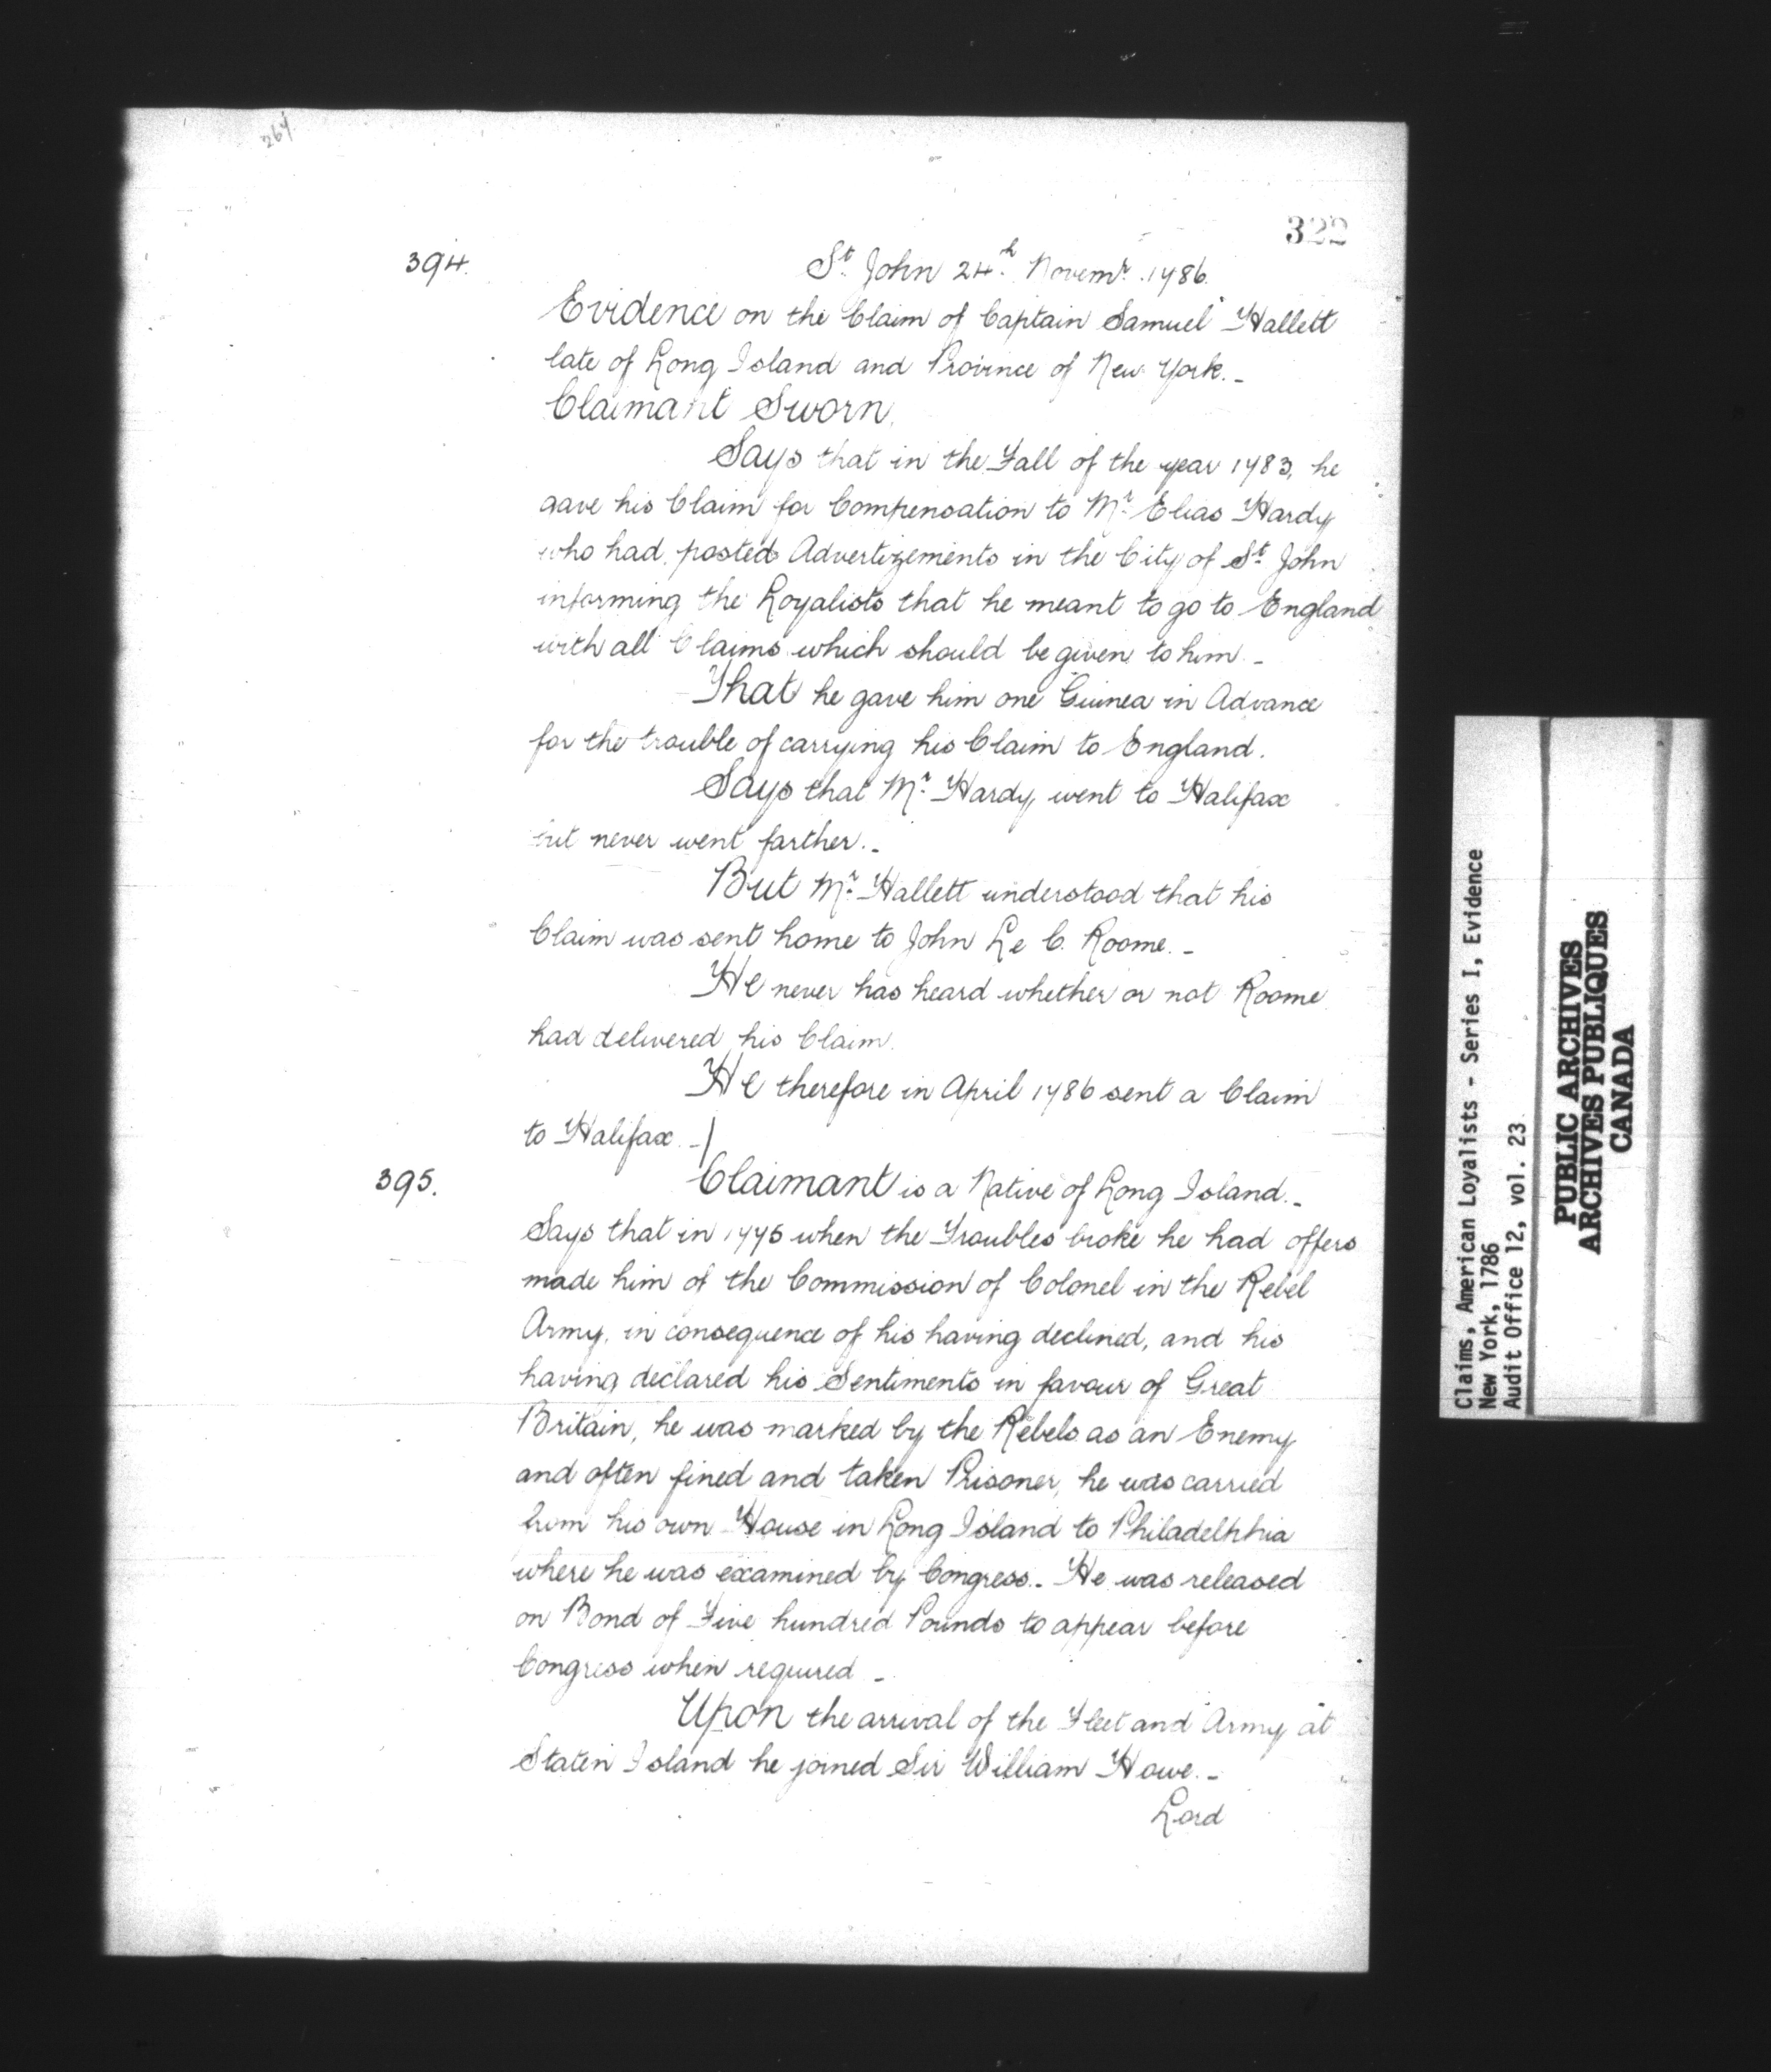 264
322
394.
St. John 24th. Novemr. 1786.
Evidence on the Claim of Captain Samuel Hallett
late of Long Island and Province of New York. -
Claimant Sworn.
Says that in the Fall of the year 1783, he
gave his Claim for Compensation to Mr. Elias Hardy
who had posted Advertizements in the City of St. John
informing the Loyalists that he meant to go to England
with all Claims which should be given to him. -
That he gave him one Guinea in Advance
for the trouble of carrying his Claim to England.
Says that Mr. Hardy, went to Halifax
but never went farther. -
But Mr. Hallett understood that his
Claim was sent home to John Le C. Roome. -
He never has heard whether or not Roome
had delivered his Claim.
He therefore in April 1786 sent a Claim
to Halifax. -/
395.
Claimant is a Native of Long Island. -
Says that in 1775 when the Troubles broke he had offers
made him of the Commission of Colonel in the Rebel
Army, in consequence of his having declined, and his
having declared his Sentiments in favour of Great
Britain, he was marked by the Rebels as an Enemy
and often fined and taken Prisoner, he was carried
from his own House in Long Island to Philadelphia
where he was examined by Congress. - He was released
on Bond of Five hundred Pounds to appear before
Congress when required -
Upon the arrival of the Fleet and Army at
Staten Island he joined Sir William Howe. -
Lord
Claims, American Loyalists - Series I, Evidence
New York, 1786
Audit Office 12, vol. 23
PUBLIC ARCHIVES
ARCHIVES PUBLIQUES
CANADA